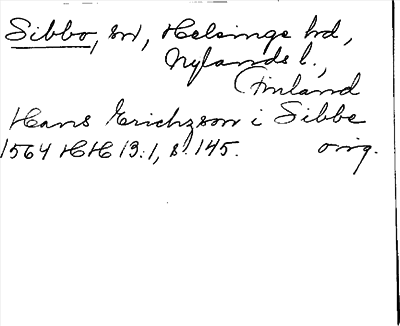 Sibbo, sn, Helsinge hd,
Nylands l.,
(Finland
Hans Erichzson i Sibbe
1564 HH 13:1, s. 145. orig.